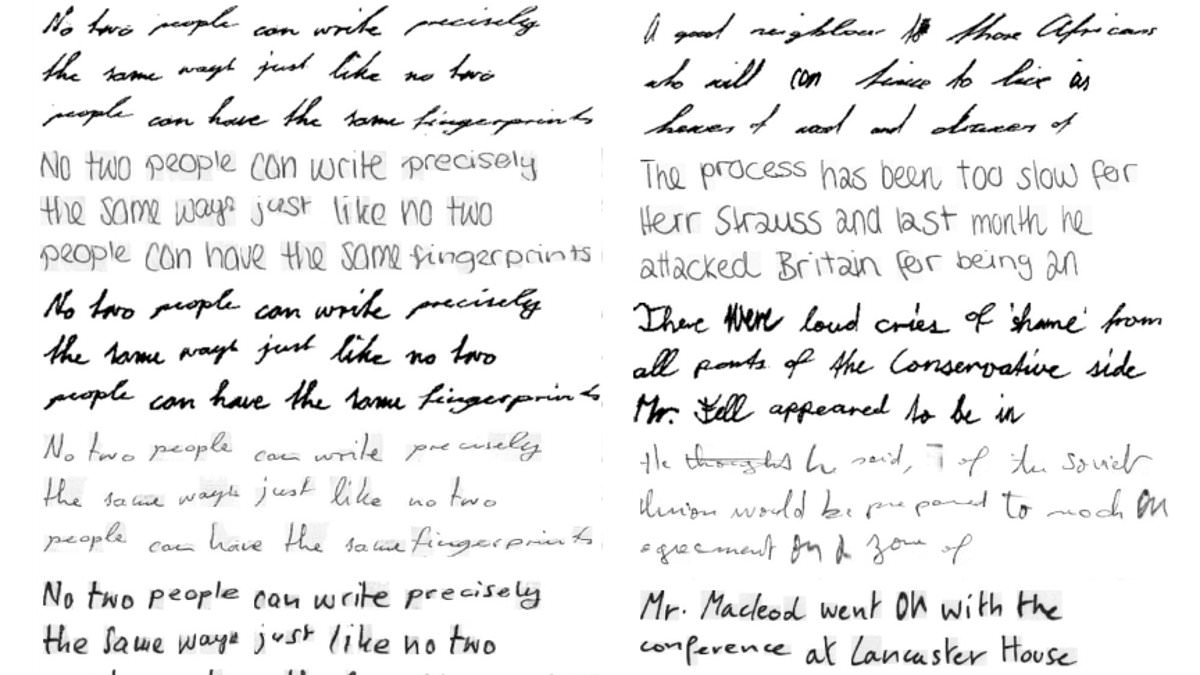 No two people can write precisely
the same ways just like no two
people can have the same fingerprints
No two people can write precisely
the same ways just like no two
people can have the same fingerprints
No two people can write precisely
the same ways just like no two
people can have the same fingerprints
No two people can write precisely
the same ways just like no two
people can have the same fingerprints
No two people can write precisely
the same ways just like no two
A good neighbour to those Africans
who will con tinue to live as
hewers of wood and drawers of
The process has been too slow for
Herr Strauss and last month he
attacked Britain for being an
There were loud cries of 'shame' from
all parts of the Conservative side
Mr. Fell appeared to be in
He thoughts he said, of the Soviet
Union would be prepared to reach an
agreement on a zone of
Mr. Macleod went on with the
conference at Lancaster House